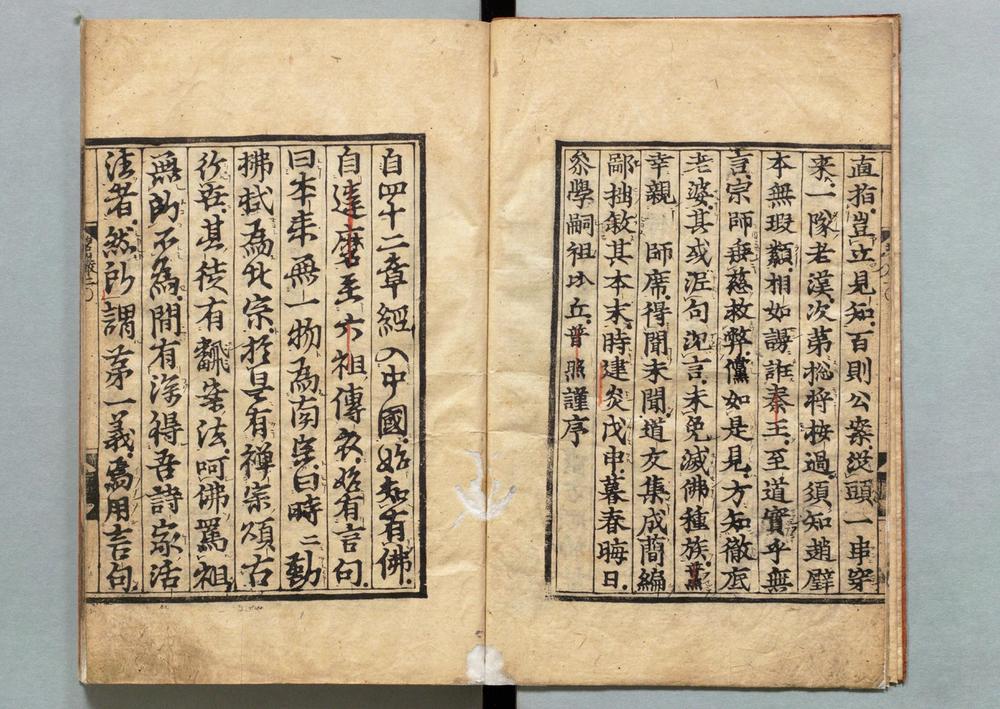 直指。豈立見知。百則公案。從頭一串穿
來。一隊老漢。次第捴將按過。須知趙璧
本無瑕纇。相如謾誑秦王。至道實乎無
言。宗師垂慈救弊。儻如是見。方知徹底
老婆。其或泥句沈言。未免滅佛種族。
幸親 師席。得聞未聞。道友集成蕳編
鄙拙敘其本末。時建炎戊申。暮春晦日。
叅學嗣祖比丘。普照謹序
自四十二章經。入中國。始知有佛。
自達磨至六祖傳衣。始有言句。
曰本来無一物為南宗。曰時二勤
拂拭為北宗。於是有禅宗頌古
行世。其徒有飜案法。呵佛罵祖
無所不為。間有深得吾詩家活
法者。然所謂第一義。焉用言句。